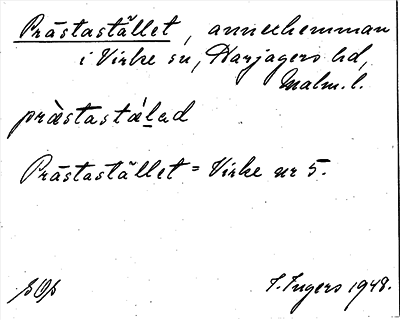 Prästastället, annexhemman
i Virke sn, Harjagers hd,
Malm. l.
pràstastǽlad
Prästastället = Virke nr 5.
I. Ingers 1948.